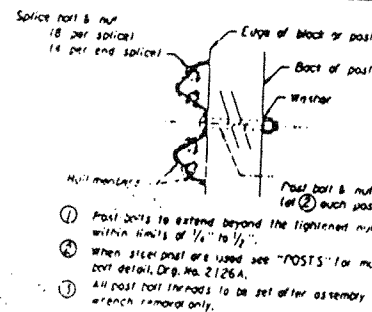 Splice bolt & nut
(8 per splice)
(4 per end splice)
Edge of block or post
Back of post
Washer
Rail members
Post bolt & nut
(at ② each post
① Post bolts to extend beyond the tightened nut
within limits of ¼" to ½".
② When steel post are used see "POSTS" for
bolt detail, Drg. No. 2126A.
③ All post bolt threads to be set after assembly
wrench removal only.